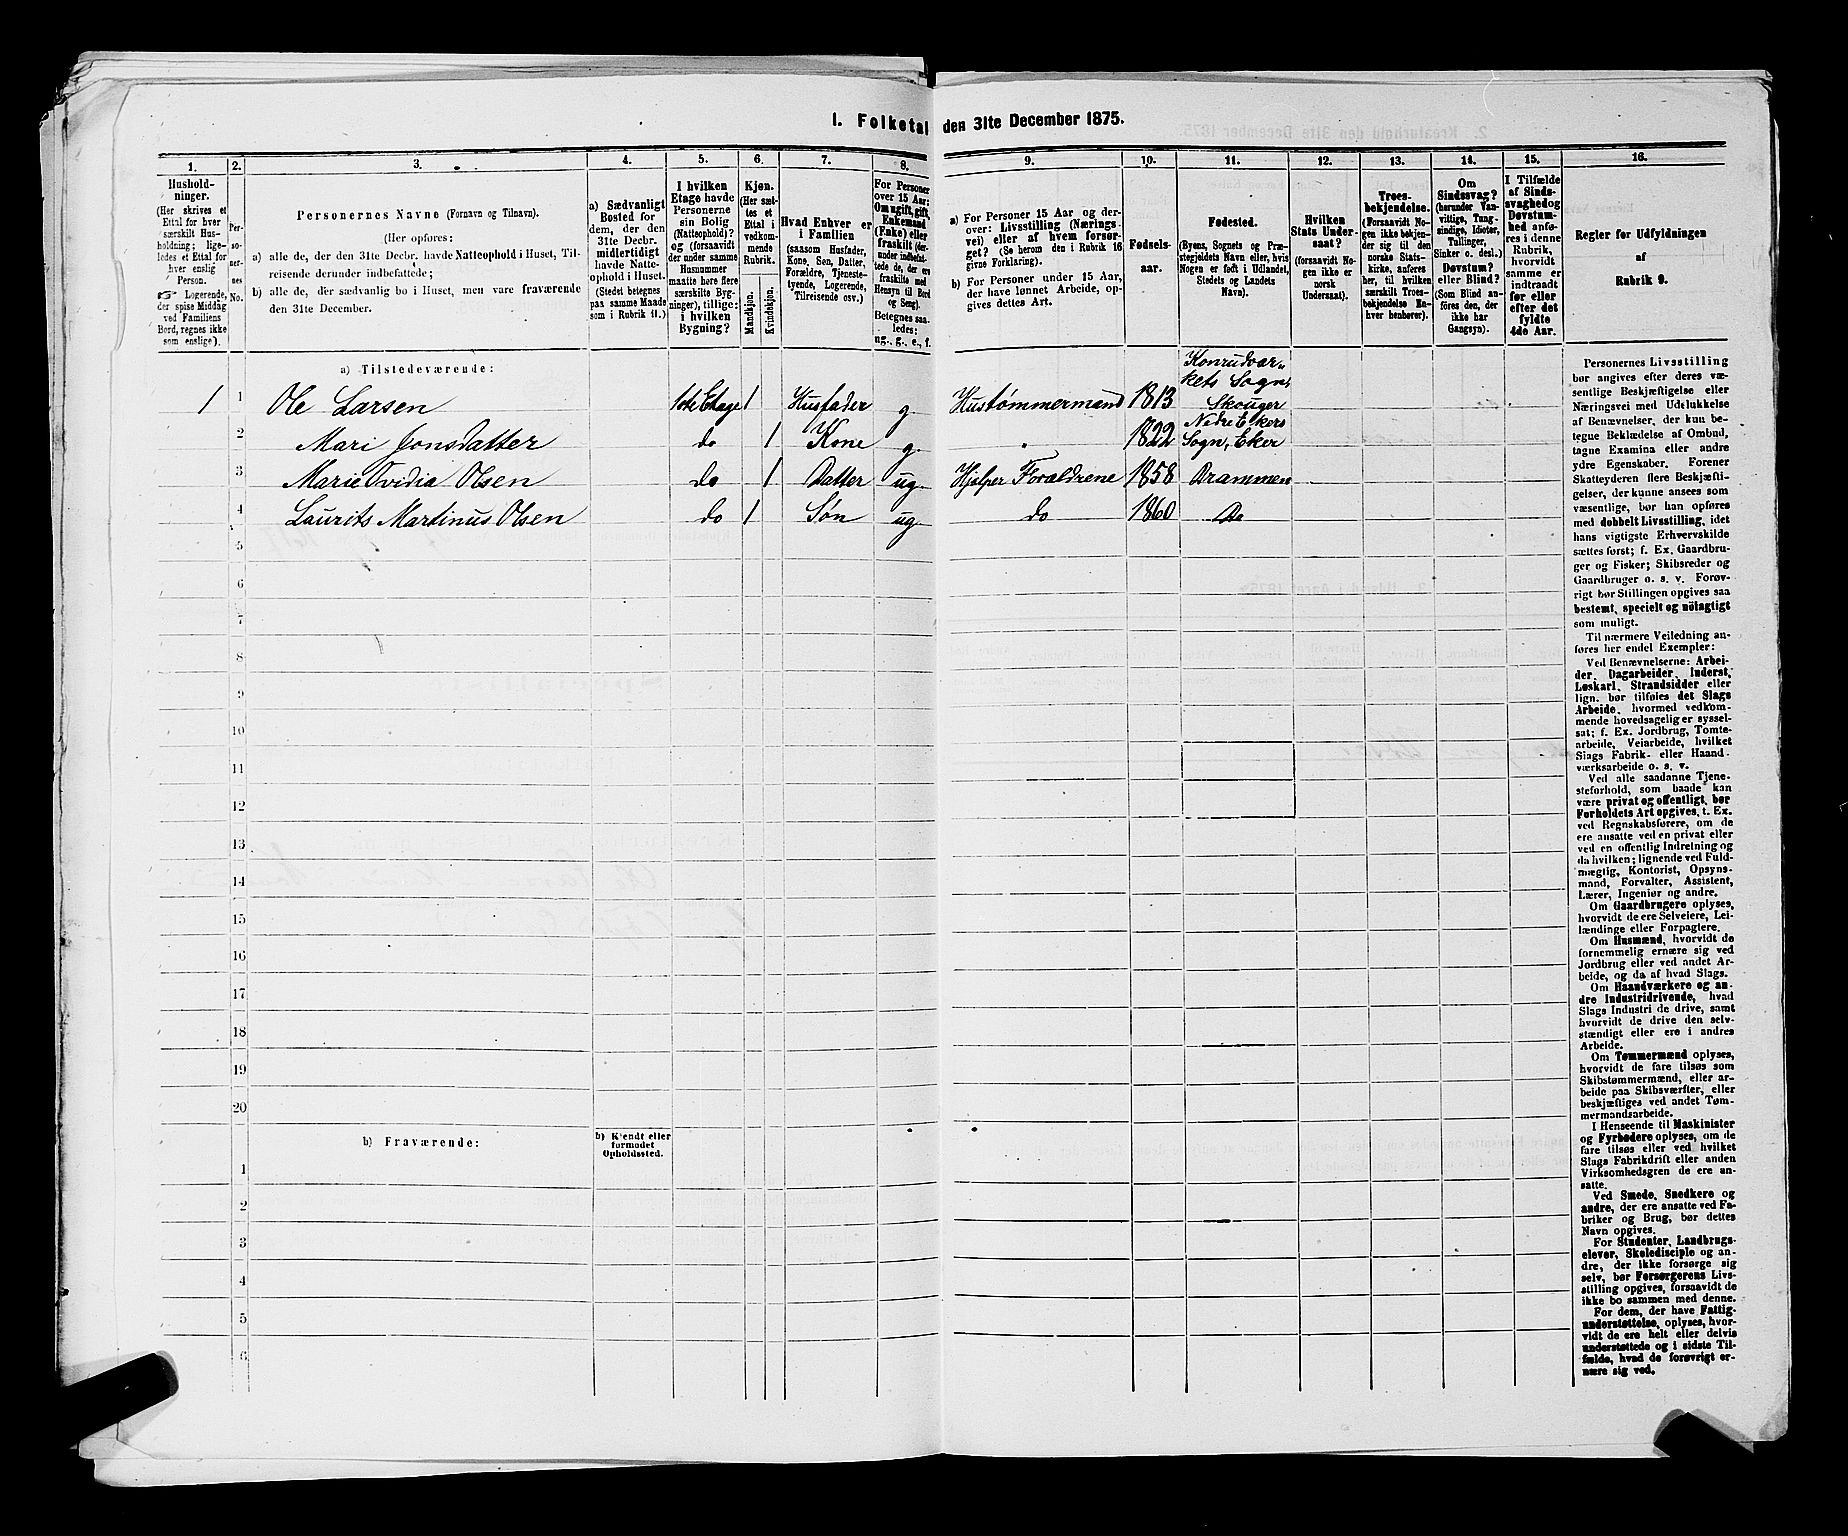 1. Folketal den 31te December 1875.
1. 2. 3. 4. 5. 6. 7. 8. 9. 10. 11. 12. 13. 14. 15. 16.
Hushold-
ninger.
(Her skrives et
Ettal for hver
særskilt Hus-
holdning; lige-
ledes et Ettal for
hver enslig
Person.
Logerende,
der spise Middag
ved Familiens
Bord, regnes ikke
som enslige).
Per-
so-
ner-
nes
No.
Personernes Navne (Fornavn og Tilnavn).
(Her opføres:
a) alle de, der den 31te Decbr. havde Natteophold i Huset, Til-
reisende derunder indbefattede;
b) alle de, der sædvanlig bo i Huset, men vare fraværende
den 31te December.
a) Sædvanligt
Bosted for
dem, der den
31te Decbr.
midlertidigt
havde Natte-
ophold i Huset.
(Stedet betegnes
paa samme Maade
som i Rubrik 11.)
I hvilken
Etage havde
Personerne
sin Bolig
(Natteophold)?
og (forsaavidt
der under samme
Husnummer
maatte høre flere
særskilte Byg-
ninger), tillige:
i hvilken
Bygning?
Kjøn.
(Her sæt-
tes et
Ettal i
vedkom-
mende
Rubrik.
Mandkjøn.
Kvindekjøn.
Hvad Enhver er
i Familien
(saasom Husfader,
Kone, Søn, Datter,
Forældre, Tjeneste-
tyende, Logerende,
Tilreisende osv.)
For Personer
over 15 Aar:
Om ugift, gift,
Enkemand
(Enke) eller
fraskilt (der-
under indbefat-
tede de, der ere
fraskilte med
Hensyn til Bord
og Seng).
Betegnes saa-
ledes:
ug., g., e., f.
a) For Personer 15 Aar og der-
over: Livsstilling (Nærings-
vei) eller af hvem forsør-
get? (Se herom den i Rubrik 16
givne Forklaring).
b) For Personer under 15 Aar,
der have lønnet Arbeide, op-
gives dettes Art.
Fødsels-
aar.
Fødested.
(Byens, Sognets og Præ-
stegjeldets Navn eller, hvis
Nogen er født i Udlandet,
Stedets og Landets
Navn).
Hvilken
Stats Under-
saat?
(forsaavidt No-
gen ikke er
norsk
Undersaat).
Troes-
bekjendelse.
(Forsaavidt No-
gen ikke bekjen-
der sig til den
norske Stats-
kirke, anføres
her, til hvilken
særskilt Troes-
bekjendelse En-
hver henhører).
Om
Sindssvag?
(herunder Van-
vittige, Tung-
sindige, Idioter,
Tullinger,
Sinker o. desl.)
Døvstum?
eller Blind?
(Som Blind an-
føres den, der
ikke har
Gangsyn).
I Tilfælde
af Sinds-
svaghed og
Døvstum-
hed anfø-
res i denne
Rubrik,
hvorvidt
samme er
indtraadt
før eller
efter det
fyldte
4de Aar.
Regler for Udfyldningen
af
Rubrik 9.
a) Tilstedeværende:
Konrudvær-
kets Sogn,
1 1 Ole Larsen 1ste Etage 1 Husfader g. Hustømmermand 1813 Skouger
Nedre Ekers
2 Mari Jonsdatter do 1 Kone g. 1822 Sogn, Eker
3 Marie Ovidia Olsen do 1 Datter ug. Hjelper Forældrene 1858 Drammen
4 Laurits Martinus Olsen do 1 Søn ug. do 1860 Do
5
6
7
8
9
10
11
12
13
14
15
16
17
18
19
20
b) Fraværende:
b) Kjendt eller
formodet
Opholdssted.
1
2
3
4
5
6
Personernes Livsstilling
bør angives efter deres væ-
sentlige Beskjæftigelse eller
Næringsvei med Udelukkelse
af Benævnelser, der kun be-
tegne Beklædelse af Ombud,
tagne Examina eller andre
ydre Egenskaber. Forener
Skatteyderen flere Beskjæfti-
gelser, der kunne ansees som
væsentlige, bør han opføres
med dobbelt Livsstilling, idet
hans vigtigste Erhvervskilde
sættes først; f. Ex. Gaardbru-
ger og Fisker; Skibsreder og
Gaardbruger o. s. v. Forøv-
rigt bør Stillingen opgives saa
bestemt, specielt og nøiagtigt
som muligt.
Til nærmere Veiledning an-
føres her endel Exempler:
Ved Benævnelserne: Arbei-
der, Dagarbeider, Inderst,
Løskarl, Strandsidder eller
lign. bør tilføies det Slags
Arbeide, hvormed vedkom-
mende hovedsagelig er syssel-
sat; f. Ex. Jordbrug, Tomte-
arbeide, Veiarbeide, hvilket
Slags Fabrik- eller Haand-
værksarbeide o. s. v.
Ved alle saadanne Tjene-
steforhold, som baade kan
være privat og offentligt, bør
Forholdets Art opgives, t. Ex.
ved Regnskabsførere, om de
ere ansatte ved en privat eller
ved en offentlig Indretning og
da hvilken; lignende ved Fuld-
mægtig, Kontorist, Opsyns-
mand, Forvalter, Assistent,
Lærer, Ingeniør og andre.
Om Gaardbrugere oplyses,
hvorvidt de ere Selveiere, Lei-
lændinge eller Forpagtere.
Om Husmænd, hvorvidt de
fornemmelig ernære sig ved
Jordbrug eller ved andet Ar-
beide, og da af hvad Slags.
Om Haandværkere og an-
dre Industridrivende, hvad
Slags Industri de drive, samt
hvorvidt de drive den selv-
stændigt eller ere i andres
Arbeide.
Om Tømmermænd oplyses,
hvorvidt de fare tilsøs som
Skibstømmermænd, eller ar-
beide paa Skibsværfter, eller
beskjæftiges ved andet Tøm-
mermandsarbeide.
I Henseende til Maskinister
og Fyrbødere oplyses, om de
fare tilsøs eller ved hvilket
Slags Fabrikdrift eller anden
Virksomhedsgren de ere an-
satte.
Ved Smede, Snedkere og
andre, der ere ansatte ved Fa-
briker og Brug, bør dettes
Navn opgives.
For Studenter, Landbrugs-
elever, Skoledisciple og an-
dre, der ikke forsørge sig
selv, bør Forsørgerens Livs-
stilling opgives, forsaavidt de
ikke bo sammen med denne.
For dem, der have Fattig-
understøttelse, oplyses, hvor-
vidt de ere helt eller delvis
understøttede og i sidste Til-
fælde, hvad de forøvrigt er-
nære sig ved.